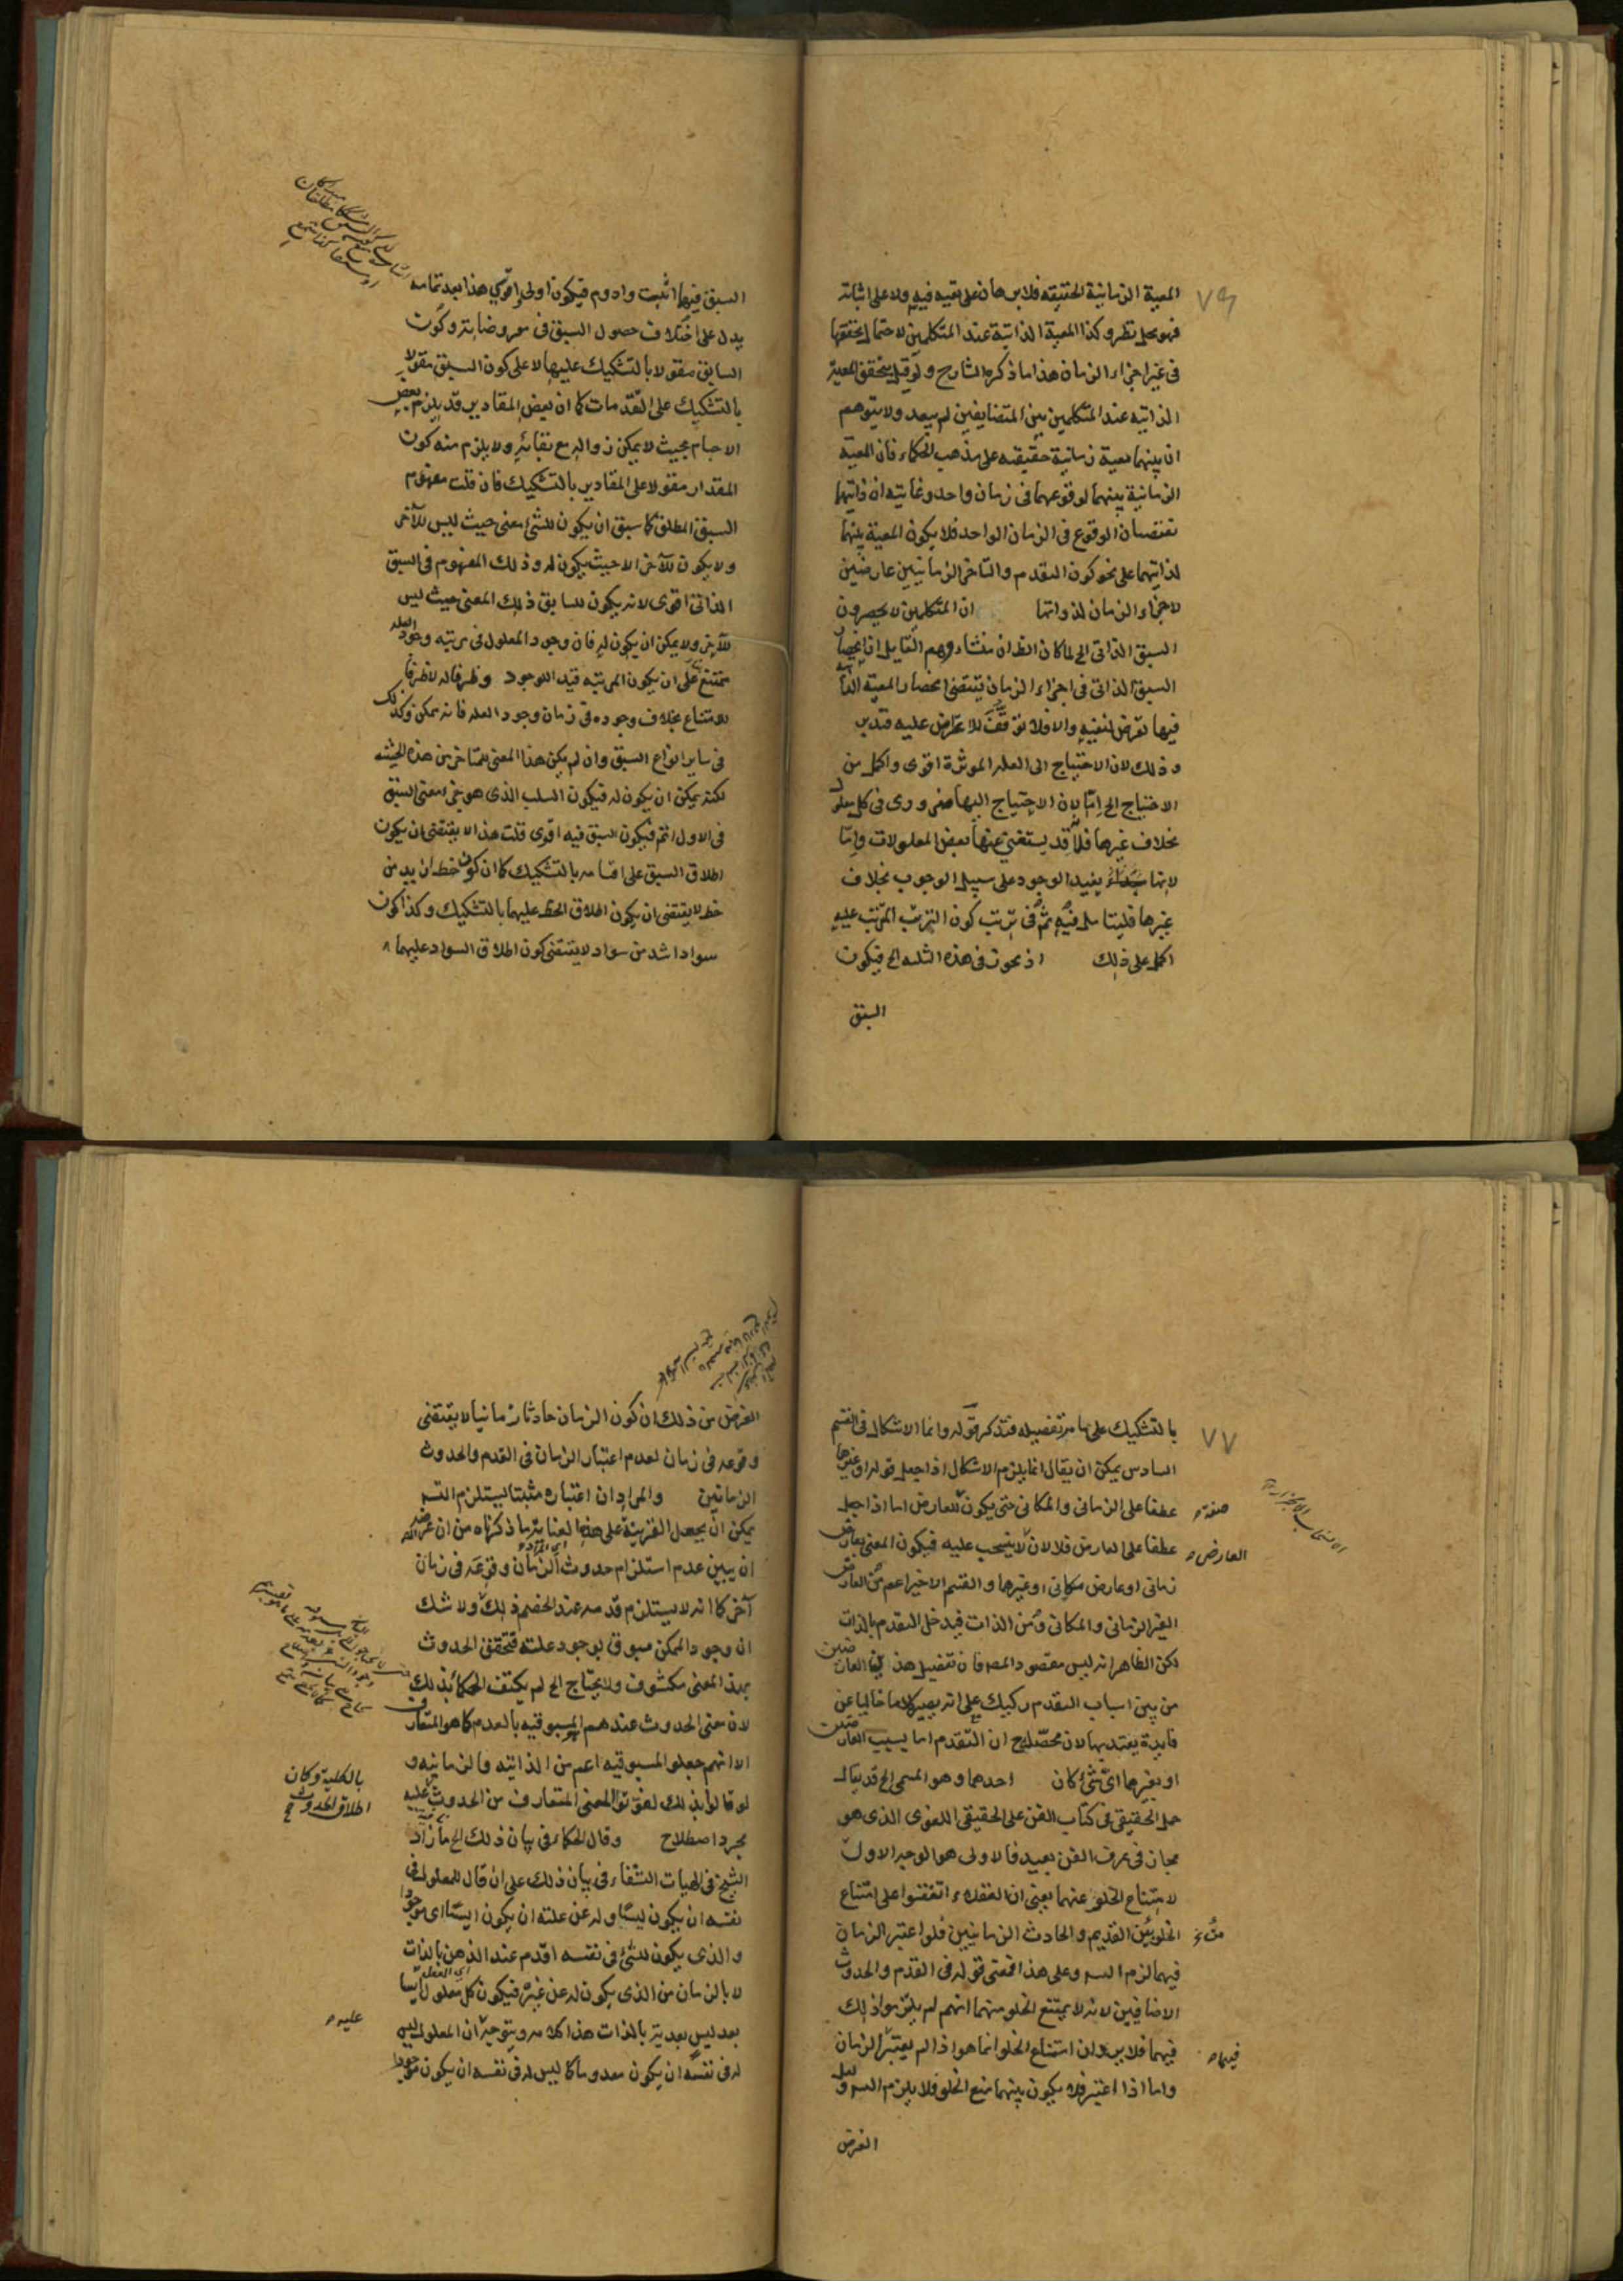 ٧٦
المعية الزمانية الحقيقه فلا برهان على نفيه فيه ولا على اثباته
فهو محل نظر وكذا المعية الذاتية عند المتكلمين لاحتمال تحققها
فى غير اجزاء الزمان هذا ما ذكره الشارح ولو قيل بتحقق المعية
الذاتيه عند المتكلمين بين المتضايفين لم يبعد ولا يتوهم
ان بينهما معية زمانية حقيقه على مذهب الحكماء فان المعية
الزمانية بينهما لوقوعهما فى زمان واحد وغايته ان ذاتيهما
تقتضيان الوقوع فى الزمان الواحد فلا يكون المعية بينهما
لذاتيهما على نحو كون التقدم والتاخر الزمانيين عارضين
لاجزاء الزمان لذواتها ان المتكلمين لا يحصرون
السبق الذاتى الخ لما كان الظ ان منشاء وهم القايل ان انحصار
السبق الذاتى فى اجزاء الزمان يقتضى انحصار المعية الذا
فيها تعرض لنفيه والا فلا توقف للاعتراض عليه فتدبر
وذلك لان الاحتياج الى العلة الموثرة اقوى واكمل من
الاحتياج الخ اما لان الاحتياج اليها ضرورى فى كل معلول
بخلاف غيرها فانه قد يستغنى عنها بعض المعلولات واما
لانها يفيد الوجود على سبيل الوجوب بخلاف
غيرها فليتامل فيه ثم فى ترتب كون الترتب المرتب عليه
اكمل على ذلك اذ نحوت فى هذه الثلثه الخ فيكون
السبق
السبق فيهما اثبت وادوم فيكون اولى واقوى هذا بعد تمامه
يدل على اختلاف حصول السبق فى معروضاته وكون
السابق مقولا بالتشكيك عليها لا على كون السبق مقولا
بالتشكيك على التقدمات كما ان بعض المقادير قد يلزم بعض
الاجسام بحيث لا يمكن زواله مع بقائه ولا يلزم منه كون
المقدار مقولا على المقادير بالتشكيك فان قلت مفهوم
السبق المطلق كما سبق ان يكون للشئ معنى حيث ليس للآخر
ولا يكون للآخر الا حيث يكون له وذلك المفهوم فى السبق
الذاتى اقوى لانه يكون للسابق ذلك المعنى حيث ليس
للآخر ولا يمكن ان يكون له فان وجود المعلول فى مرتبه وجود العله
ممتنع على ان يكون المرتبه قيد الوجود وظرفا له لا ظرفا
للامتناع بخلاف وجوده فى زمان وجود العله فانه ممكن وكذلك
فى ساير انواع السبق وان لم يكن هذا المعنى للمتاخر من هذه الحيثيه
لكنه يمكن ان يكون له فيكون السلب الذى هو جزء معنى السبق
فى الاول اتم فيكون السبق فيه اقوى قلت هذا لا يقتضى ان يكون
اطلاق السبق على اقسامه بالتشكيك كما ان كون خط ازيد من
خط لا يقتضى ان يكون اطلاق الخط عليهما بالتشكيك وكذا كون
سواد اشد من سواد لا يقتضى كون اطلاق السواد عليهما
٧٧
بالتشكيك على ما مر تفصيله فتذكر قوله وانما الاشكال فى القسم
السادس يمكن ان يقال انما يلزم الاشكال اذا جعل قوله او غيرها
عطفا على الزمانى والمكانى حتى يكون للعارض اما اذا جعل
صفة
عطفا على العارض فلا لان لا ينسحب عليه فيكون المعنى بعارض
العارض
زمانى او عارض مكانى او غيرها والقسم الاخير اعم من العارض
الغير الزمانى والمكانى ومن الذات فيدخل التقدم بالذات
لكن الظاهر انه ليس مقصود المصـ فان تفصيل هذين العارضين
من بين اسباب التقدم ركيك على انه يصير كلاما خاليا عن
فايدة يعتد بها لان محصله ح ان التقدم اما بسبب العارضين
او بغيرها اى شئ كان احدهما وهو المسمى الخ قد يقال
حمل الحقيقى فى كتاب الفن على الحقيقى اللغوى الذى هو
مجاز فى عرف الفن بعيد فالاولى هو الوجه الاول
لامتناع الخلو عنهما يعنى ان العقلاء اتفقوا على امتناع
الخلو بين القديم والحادث الزمانيين فلو اعتبر الزمان
فيهما لزم التسـ وعلى هذا فمعنى قوله فى القدم والحدوث
الاضافيين لانه لا يمتنع الخلو منهما انهم لم يلتزموا ذلك
فيهما فلا يرد ان امتناع الخلو انما هو اذا لم يعتبر الزمان
فيهما
واما اذا اعتبر فلا يكون بينهما منع الخلو فلا يلزم التسـ ولعل
الغرض
الغرض من ذلك ان كون الزمان حادثا زمانيا لا يقتضى
وقوعه فى زمان لعدم اعتبار الزمان فى القدم والحدوث
الزمانيين والمراد ان اعتباره مثبتا يستلزم التسـ
يمكن ان يجعل القرينة على هذه العناية ما ذكرناه من ان غرضه
ان يبين عدم استلزام حدوث الزمان وقوعه فى زمان
آخر كما انه لا يستلزم قدمه عند الخصم ذلك ولا شك
ان وجود الممكن مسبوق بوجود علته فتحقق الحدوث
بهذا المعنى مكشوف ولا يحتاج الخ لم يكتف الحكماء بذلك
لان معنى الحدوث عندهم المسبوقيه بالعدم كما هو المتعارف
الا انهم جعلوا المسبوقيه اعم من الذاتيه والزمانيه و
لو قالوا بذلك لفوتوا المعنى المتعارف من الحدوث عليه
بالكلية وكان
اطلاق الحدوث
مجرد اصطلاح وقال الحكماء فى بيان ذلك الخ ما زاد
الشيخ فى الهيات الشفاء فى بيان ذلك على ان قال للمعلول فى
نفسه ان يكون ليسا وله عن علته ان يكون ايسا اى موجودا
والذى يكون للشئ فى نفسه اقدم عند الذهن بالذات
لا بالزمان من الذى يكون له عن غيره فيكون كل معلول ايسا
بعد ليس بعدية بالذات هذا كلامه ويتوجه ان المعلول ليس
عليه
له فى نفسه ان يكون معدوما كما ليس له فى نفسه ان يكون موجودا